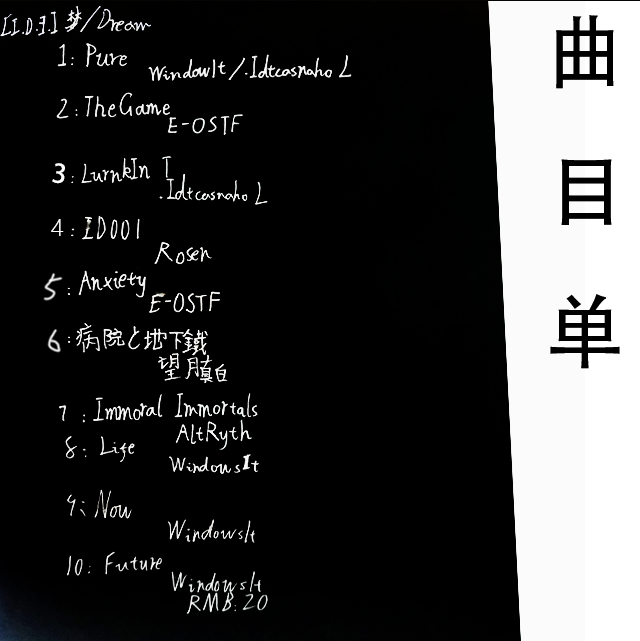 [I.D.I.] 梦/Dream
1: Pure
WindowIt/.Idtcasnaho L
2: TheGame
E-OSTF
3: LurnkIn I
.Idtcasnaho L
4: ID001
Rosen
5: Anxiety
E-OSTF
6: 病院と地下鐵
望月真白
7: Immoral Immortals
AltRyth
8: Life
WindowsIt
9: Now
WindowsIt
10: Future
WindowsIt
RMB: 20
曲
目
单